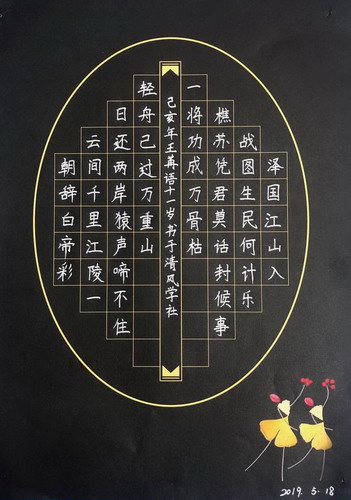 泽国江山入
战图生民何计乐
樵苏凭君莫话封候事
一将功成万骨枯
己亥年王苒语十一岁书于清风学社
轻舟已过万重山
日还两岸猿声啼不住
云间千里江陵一
朝辞白帝彩
2019. 5. 18